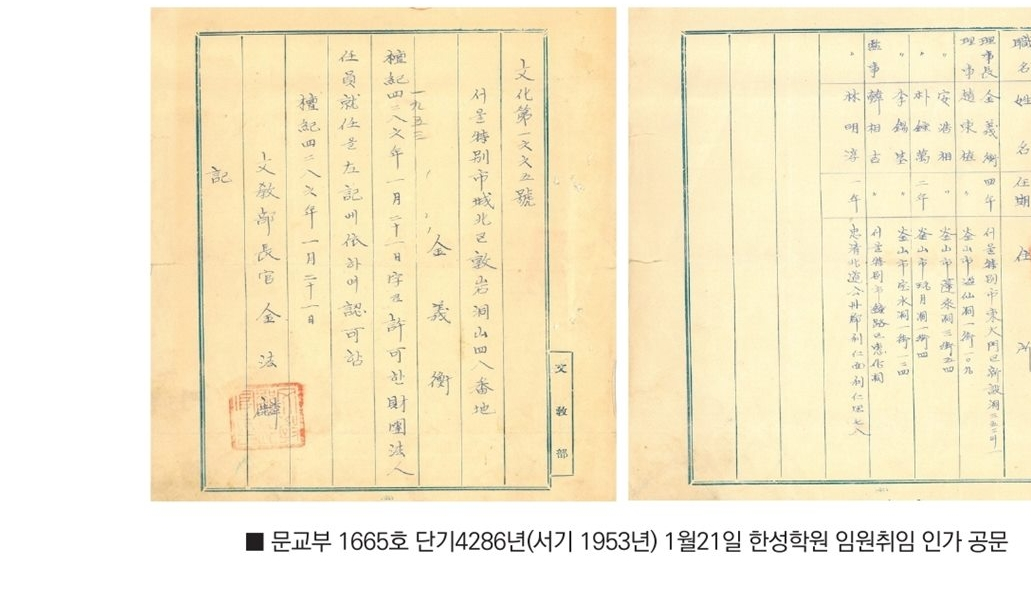 文化第一六六五號
서울特別市城北区敦岩洞山四八番地
金義衡
一九五三
檀紀四二八六年一月二十一日字로許可한財團法人
任員就任을左記에依하여認可함
檀紀四二八六年一月二十一日
文敎部長官金法麟
記
文敎部
職名 姓名 任期 住所
理事長 金義衡 四年 서울特別市東大門区新設洞
理事 趙東植 〃 釜山市
〃 安浩相 釜山市蓬萊洞三街五四
〃 朴鍾萬 二年 釜山市
〃 李錫基 釜山市
監事 韓相吉 〃 서울特別市鍾路区惠化洞
〃 林明淳 一年 忠淸北道
■ 문교부 1665호 단기4286년(서기 1953년) 1월21일 한성학원 임원취임 인가 공문